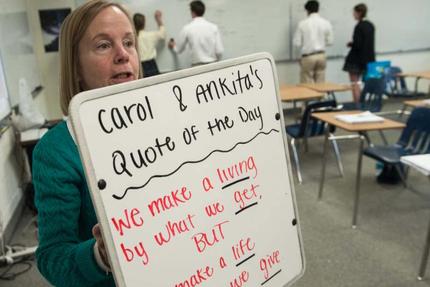 Carol & Ankita's
Quote of the Day
We make a living
by what we get,
BUT
make a life
we give